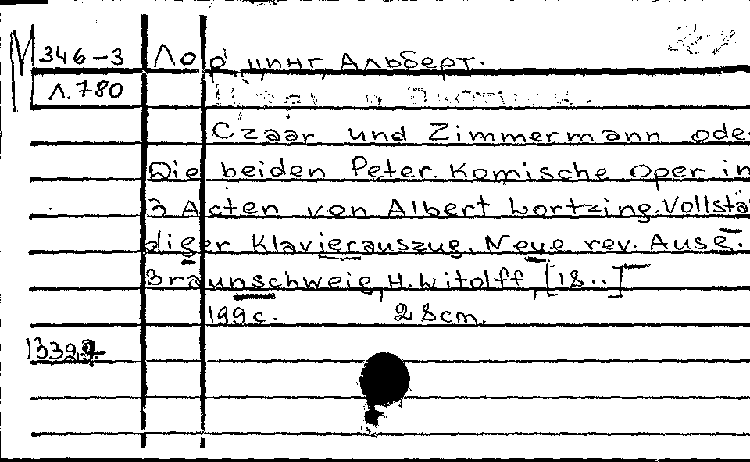 М 346-3 Лорцинг Альберт.
Л.780
Czaar und Zimmermann ode
Die beiden Peter. Komische Oper in
3 Acten von Albert Lortzing. Vollstä
diger Klavierauszug. Neue rev. Ausg.
Braunschweig, H. Litolff, [18..]
199 с. 28 cm.